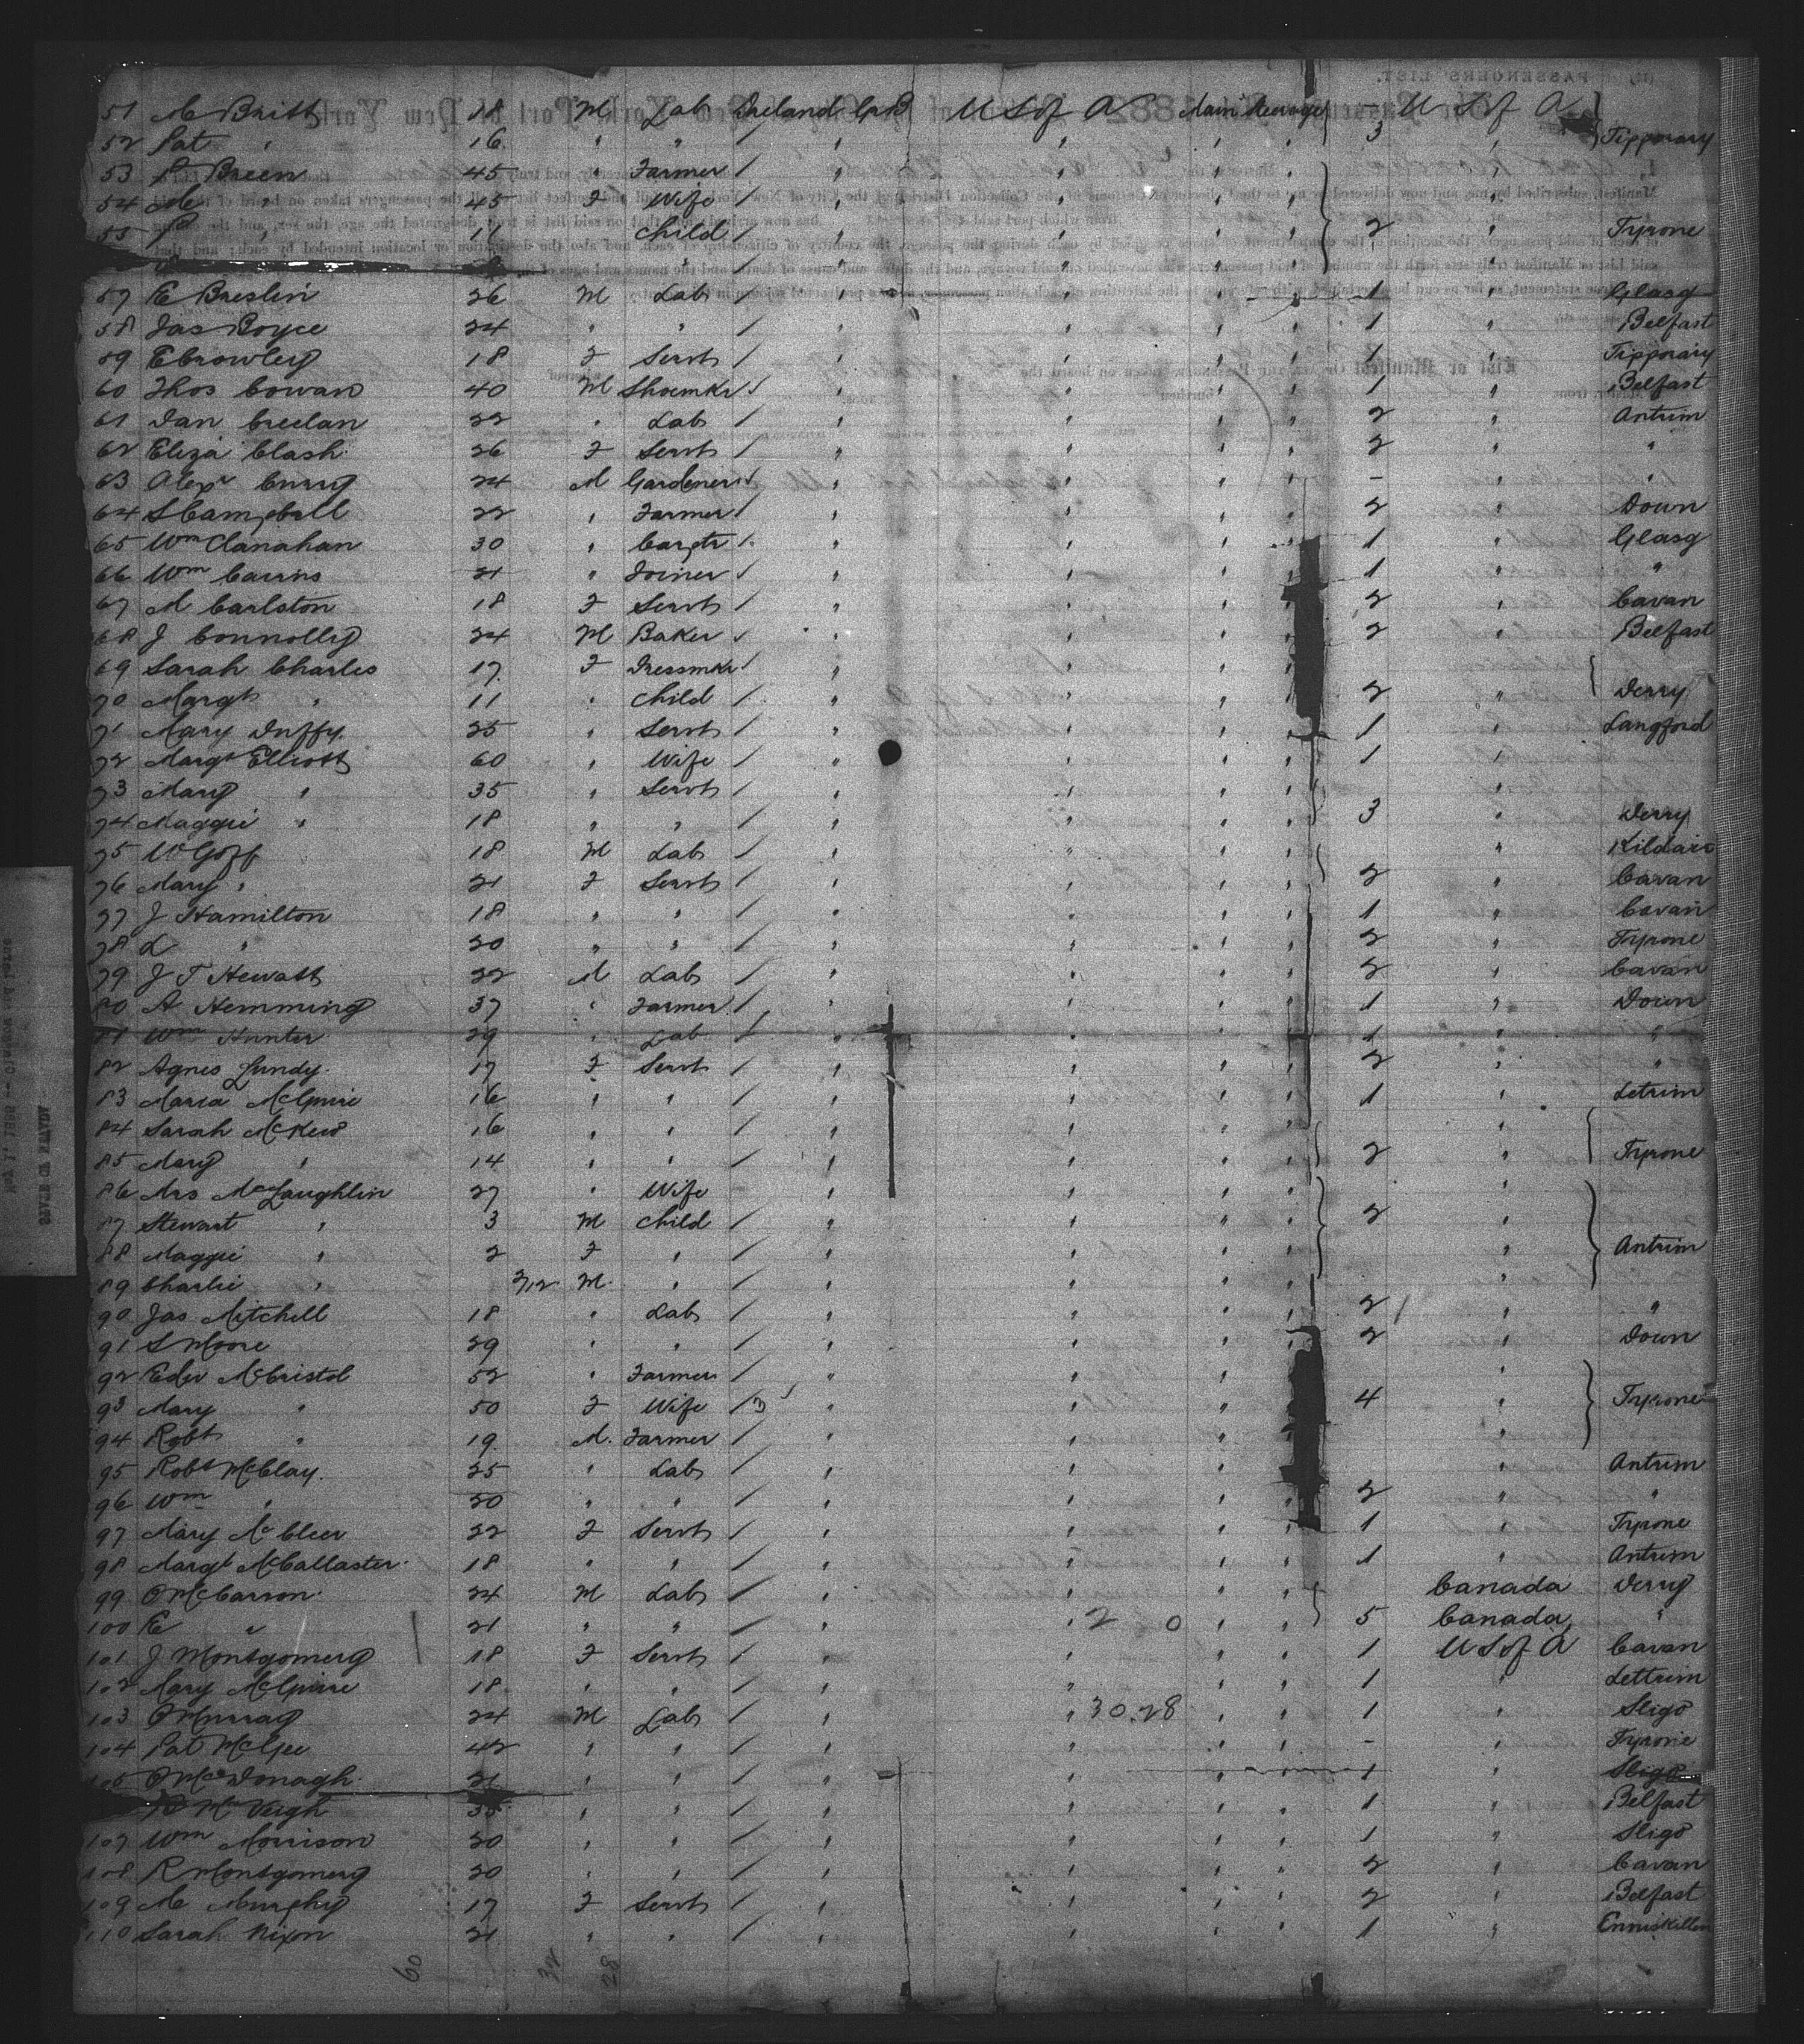 51 M Britt 18 M Lab Ireland GrB U S of A Main Steerage — U S of A
52 Pat " 16 " " " " " " 3 " Tipporary
53 P Breen 45 " Farmer " " " " "
54 M " 45 F Wife " " " " "
55 P " 11 " Child " " " " 2 " Tyrone
" " " " " "
57 E Breslin 26 M Lab " " " " 1 " Glasg
58 Jas Boyce 24 " " " " " " 1 " Belfast
59 E Crowley 18 F Servt " " " " 1 " Tipporary
60 Thos Cowan 40 M Shoemkr " " " " 1 " Belfast
61 Dan Creelan 22 " Lab " " " " 2 " Antrim
62 Eliza Clash 26 F Servt " " " " 2 " "
63 Alexr Curry 24 M Gardener " " " " – " "
64 S Campbell 22 " Farmer " " " " 2 " Down
65 Wm Clanahan 30 " Carptr " " " " 1 " Glasg
66 Wm Cairns 21 " Joiner " " " " 1 " "
67 M Carlston 18 F Servt " " " " 2 " Cavan
68 J Connolly 24 M Baker " " " " 2 " Belfast
69 Sarah Charles 17 F Dressmkr " " " "
70 Margt " 11 " Child " " " " 2 " Derry
71 Mary Duffy 25 " Servt " " " " 1 " Langford
72 Margt Elliott 60 " Wife " " " " 1 "
73 Mary " 35 " Servt " " " " "
74 Maggie " 18 " " " " " " 3 " Derry
75 W Goff 18 M Lab " " " " " Kildair
76 Mary " 21 F Servt " " " " 2 " Cavan
77 J Hamilton 18 " " " " " " 1 " Cavan
78 L " 20 " " " " " " 2 " Tyrone
79 J T Hewatt 22 M Lab " " " " 2 " Cavan
80 A Hemming 37 " Farmer " " " " 1 " Down
81 Wm Hunter 29 " Lab " " " " 1 " "
82 Agnes Lundy 17 F Servt " " " " 2 " "
83 Maria McGuire 16 " " " " " " 1 " Letrim
84 Sarah McKew 16 " " " " " " "
85 Mary " 14 " " " " " " 2 " Tyrone
86 Mrs McLaughlin 27 " Wife " " " " "
87 Stewart " 3 M Child " " " " 2 "
88 Maggie " 2 F " " " " " " Antrim
89 Charlie " 2/12 M " " " " " "
90 Jas Mitchell 18 " Lab " " " " 2 " "
91 S Moore 29 " " " " " " 2 " Down
92 Edw McCristol 52 " Farmer " " " " "
93 Mary " 50 F Wife 3 " " " " 4 " Tyrone
94 Robt " 19 M Farmer " " " " "
95 Robt McClay 25 " Lab " " " " " Antrim
96 Wm " 20 " " " " " " 2 " "
97 Mary McCleer 22 F Servt " " " " 1 " Tyrone
98 Margt McCallaster 18 " " " " " " 1 " Antrim
99 O McCarron 24 M Lab " " " " Canada Derry
100 E " 21 " " " " 2 0 " " 5 Canada "
101 J Montgomery 18 F Servt " " " " 1 U S of A Cavan
102 Mary McGuire 18 " " " " " " 1 " Lettrim
103 O Murray 24 M Lab " " 30.28 " " 1 " Sligo
104 Pat McGee 42 " " " " " " – " Tyrone
105 O McDonagh 21 " " " " " " 1 " Sligo
McVeigh " " " " " " 1 " Belfast
107 Wm Morrison 20 " " " " " " 1 " Sligo
108 R Montgomery 20 " " " " " " 2 " Cavan
109 M Murphy 17 F Servt " " " " 2 " Belfast
110 Sarah Nixon 21 " " " " " " 1 " Enniskillen
60 32 28